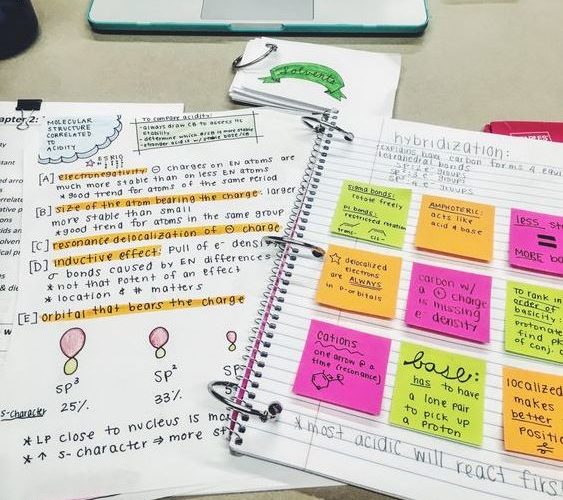 Solvents
apter 2:
MOLECULAR
STRUCTURE
CORRELATED
TO
ACIDITY
To compare acidity:
stability
[A] electronegativity: ⊖ charges on EN atoms are
much more stable than on less EN atoms
* good trend for atoms of the same period
[B] size of the atom bearing the charge: larger
more stable than small
* good trend for atoms in the same group
[C] resonance delocalization of ⊖ charge
[D] inductive effect: Pull of e- densi
σ bonds caused by EN differences
* not that potent of an effect
* location & # matters
[E] orbital that bears the charge
SP3
SP2
SP
s-character
25%.
33%.
* LP close to nucleus is mo
* ↑ s-character ⇒ more st
hybridization:
explains how carbon forms 4 equi
tetrahedral bonds
groups
sigma bonds:
rotate freely
pi bonds:
restricted rotation
trans-
cis-
AMPHOTERIC:
acts like
acid and base
less st
=
MORE ba
☆ delocalized
electrons
are ALWAYS
in p-orbitals
carbon w/
a ⊖ charge
is missing
e- density
To rank in
order of
basicity:
protonate
find pk
of conj. a
Cations
one arrow @ a
time (resonance)
base:
has to have
a lone pair
to pick up
a proton
localized
makes
better
positi
*most acidic will react first